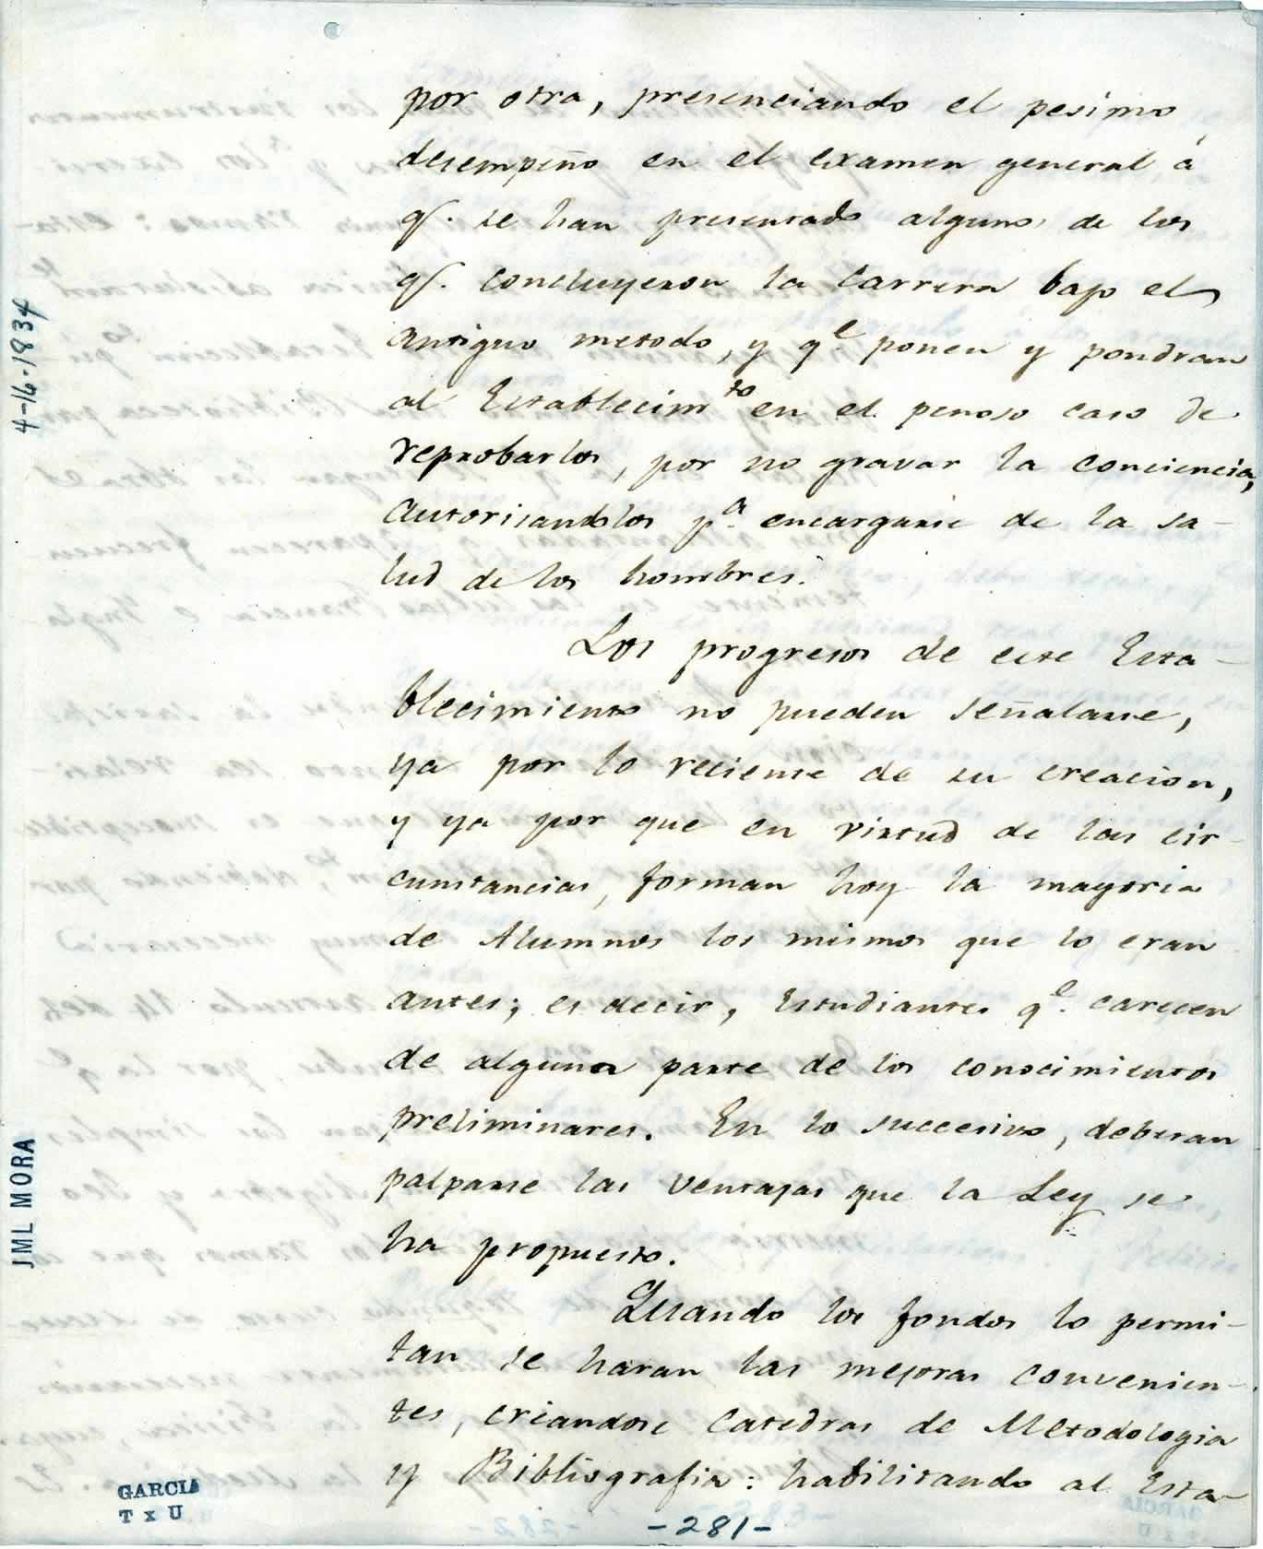 por otra, presenciando el pesimo
desempeño en el examen general á
q.e se han presentado algunos de los
q.e concluyeron la carrera bajo el
antiguo metodo, y q.e ponen y pondran
al Establecim.to en el penoso caso de
reprobarlos, por no gravar la conciencia,
autorisandolos p.a encargarse de la sa-
lud de los hombres.
Los progresos de este Esta-
blecimiento no pueden señalarse,
ya por lo reciente de su creacion,
y ya por que en virtud de las cir-
cunstancias, forman hoy la mayoria
de Alumnos los mismos que lo eran
antes; es decir, Estudiantes q.e carecen
de alguna parte de los conocimientos
preliminares. En lo succesivo, deberan
palparse las ventajas que la Ley se
ha propuesto.
Quando los fondos lo permi-
tan se haran las mejoras convenien-
tes, criandose Catedras de Metodologia
y Bibliografia: habilitando al Esta-
-281-
4-16-1834
JML MORA
GARCIA
T x U